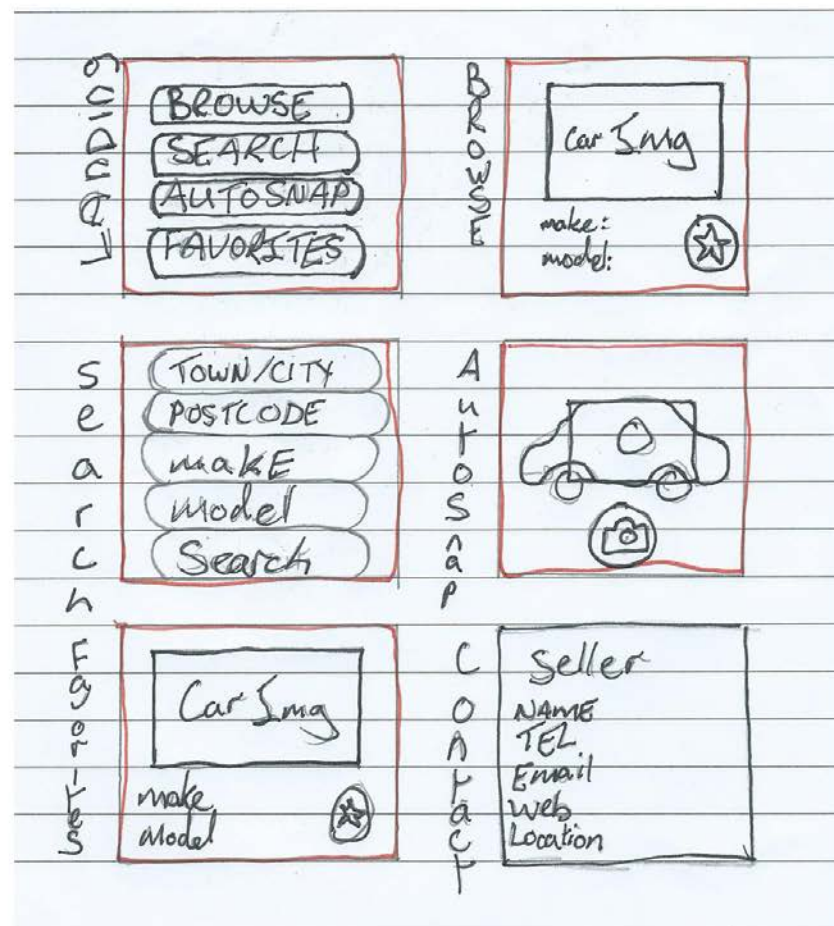 LanDing
BROWSE
SEARCH
AUTOSNAP
FAVORITES
BROWSE
Car Img
make:
model:
Search
TOWN/CITY
POSTCODE
makE
model
Search
AutoSnap
Favorites
Car Img
make
Model
COntacT
Seller
NAME
TEL
Email
Web
Location